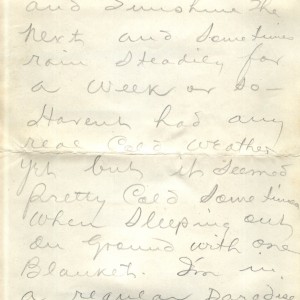 and Sunshine The
next and Sometimes
rain Steadily for
a Week or so—
Havent had any
real Cold Weather
yet but it Seemed
pretty Cold Sometimes
When Sleeping out
on Ground with one
Blanket. I'm in
a regular Paradise